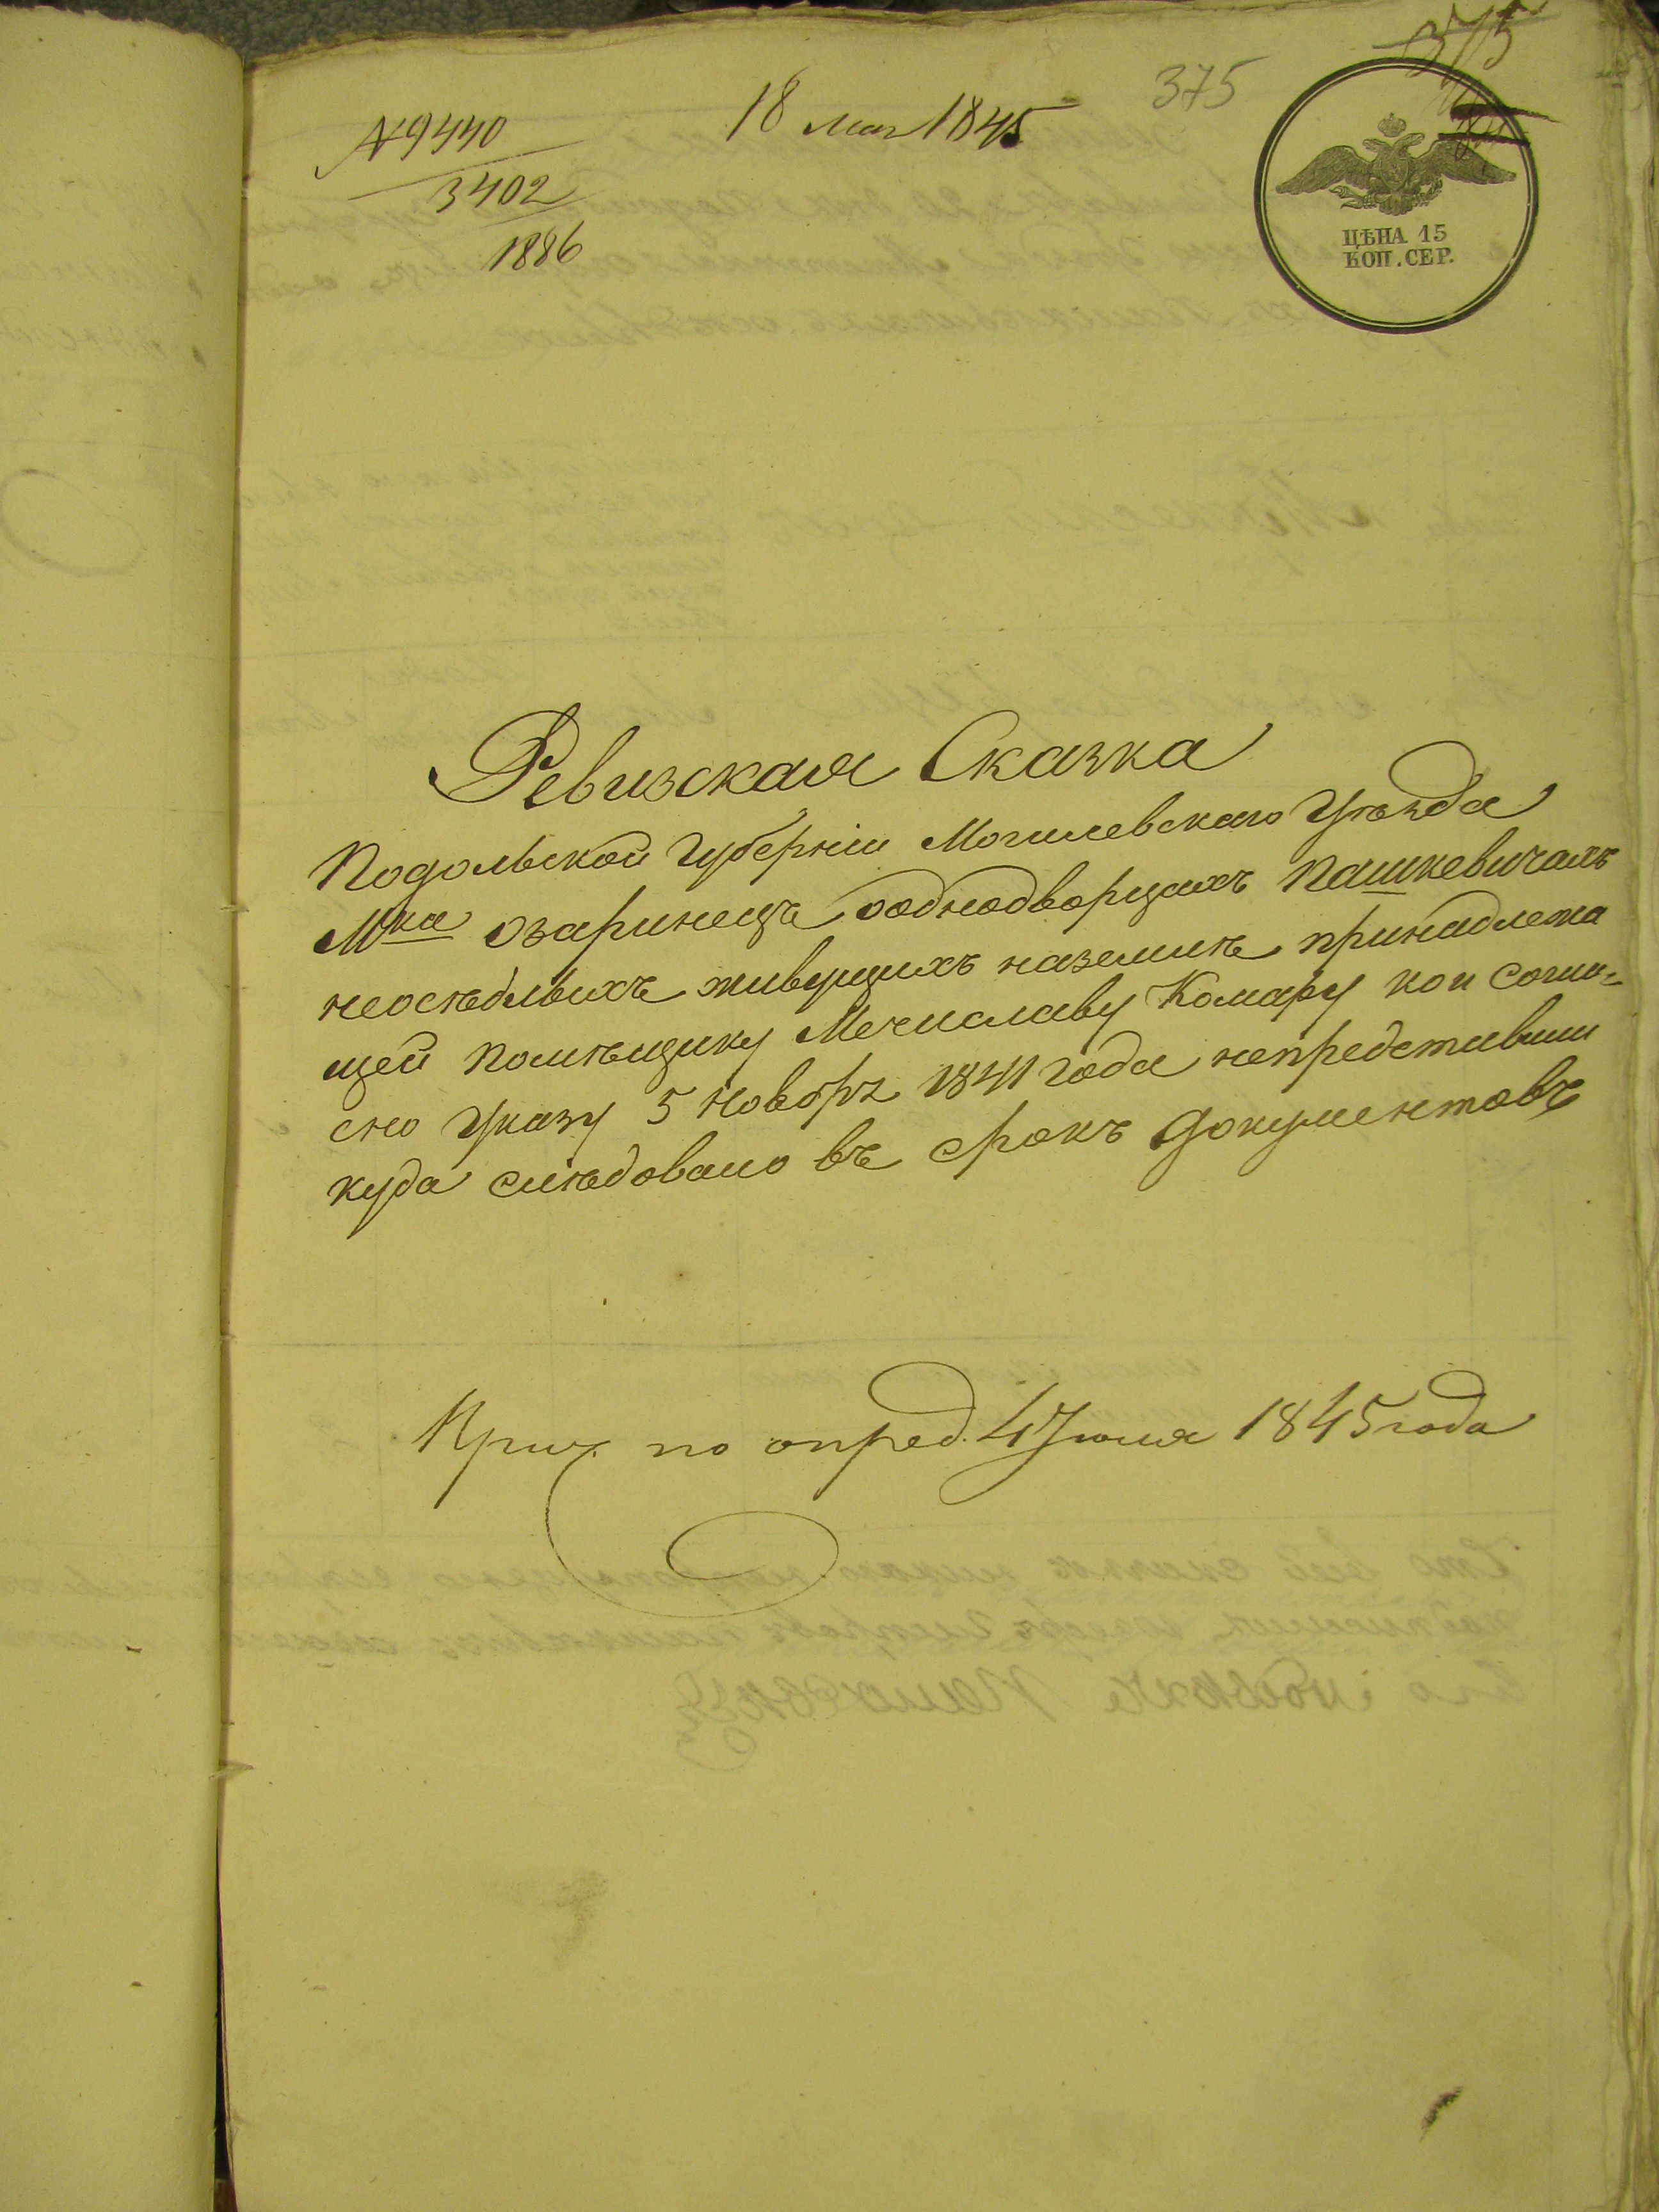 375
375
18 мая 1845
№ 9440
3402
1886
ЦѢНА 15
КОП. СЕР.
Ревизская Сказка
Подольской Губерніи Могилевскаго Уѣзда
Мка Озаринецъ ооднодворцахъ Пашкевичахъ
неосѣдлыхъ живущихъ наземлѣ принадлежа
щей Помѣщику Мечиславу Комару кои согла-
сно Указу 5 Ноября 1841 года непредставили
куда слѣдовало въ срокъ Документовъ
по опред. 4 Іюля 1845 года